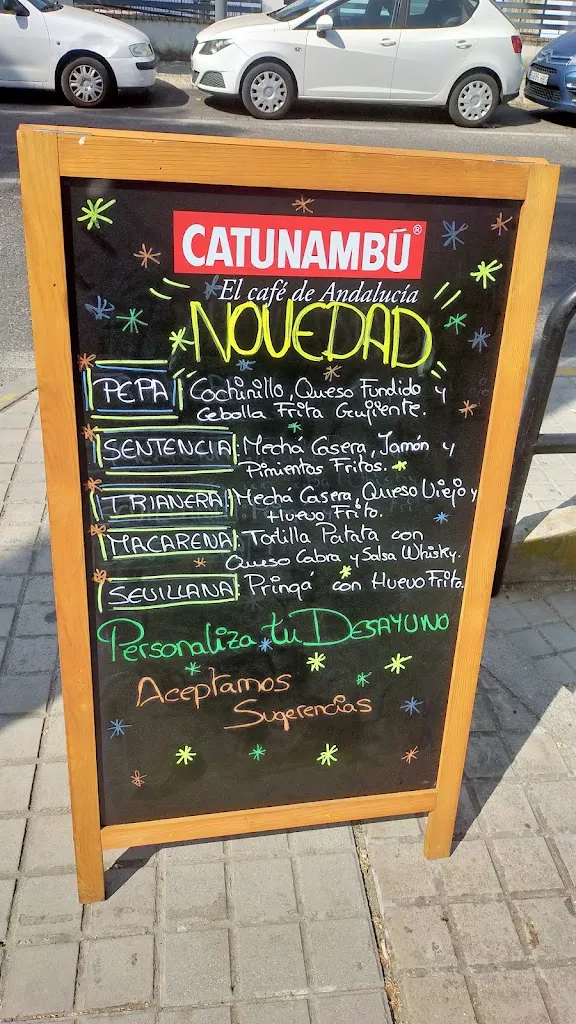 CATUNAMBÚ®
El café de Andalucía
NOVEDAD
PEPA: Cochinillo, Queso Fundido y
Cebolla Frita Crujiente.
SENTENCIA: Mechá Casera, Jamón y
Pimientos Fritos.
TRIANERA: Mechá Casera, Queso Viejo y
Huevo Frito.
MACARENA: Tortilla Patata con
Queso Cabra y Salsa Whisky.
SEVILLANA: Pringá con Huevo Frito
Personaliza tu DESAYUNO
Aceptamos
Sugerencias